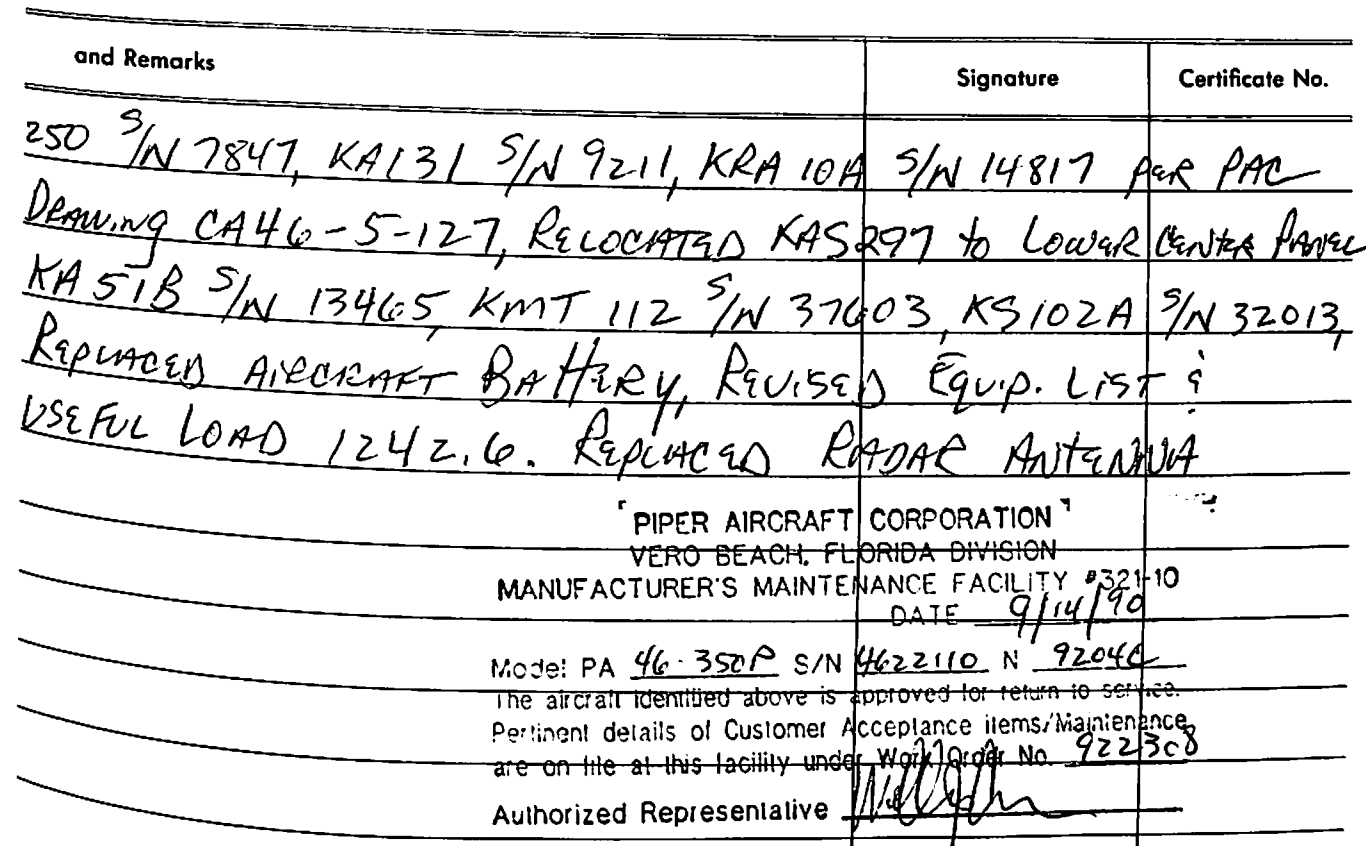 and Remarks Signature Certificate No.
250 S/N 7847, KA131 S/N 9211, KRA 10A S/N 14817 PER PAC
DRAWING CA46-5-127, RELOCATED KAS297 to LOWER CENTER PANEL
KA 51B S/N 13465, KMT 112 S/N 37603, KS102A S/N 32013,
REPLACED AIRCRAFT BATTERY, REVISED EQUIP. LIST &
USEFUL LOAD 1242.6. REPLACED RADAR ANTENNA
PIPER AIRCRAFT CORPORATION
VERO BEACH, FLORIDA DIVISION
MANUFACTURER'S MAINTENANCE FACILITY #321-10
DATE 9/14/90
Model PA 46-350P S/N 4622110 N 9204C
The aircraft identified above is approved for return to service.
Pertinent details of Customer Acceptance items/Maintenance
are on file at this facility under Work Order No. 922308
Authorized Representative